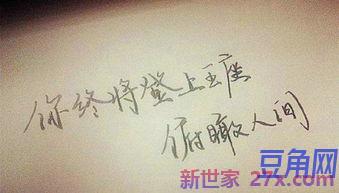 你终将登上王座
俯瞰人间
豆角网
新世家 27x.com